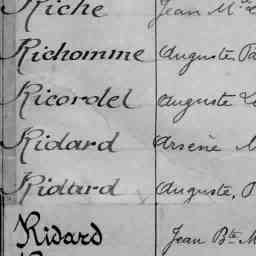 Riche Jean M
Richomme Auguste,
Ricordel Auguste
Ridard Arsène
Ridard Auguste,
Ridard Jean Bte M